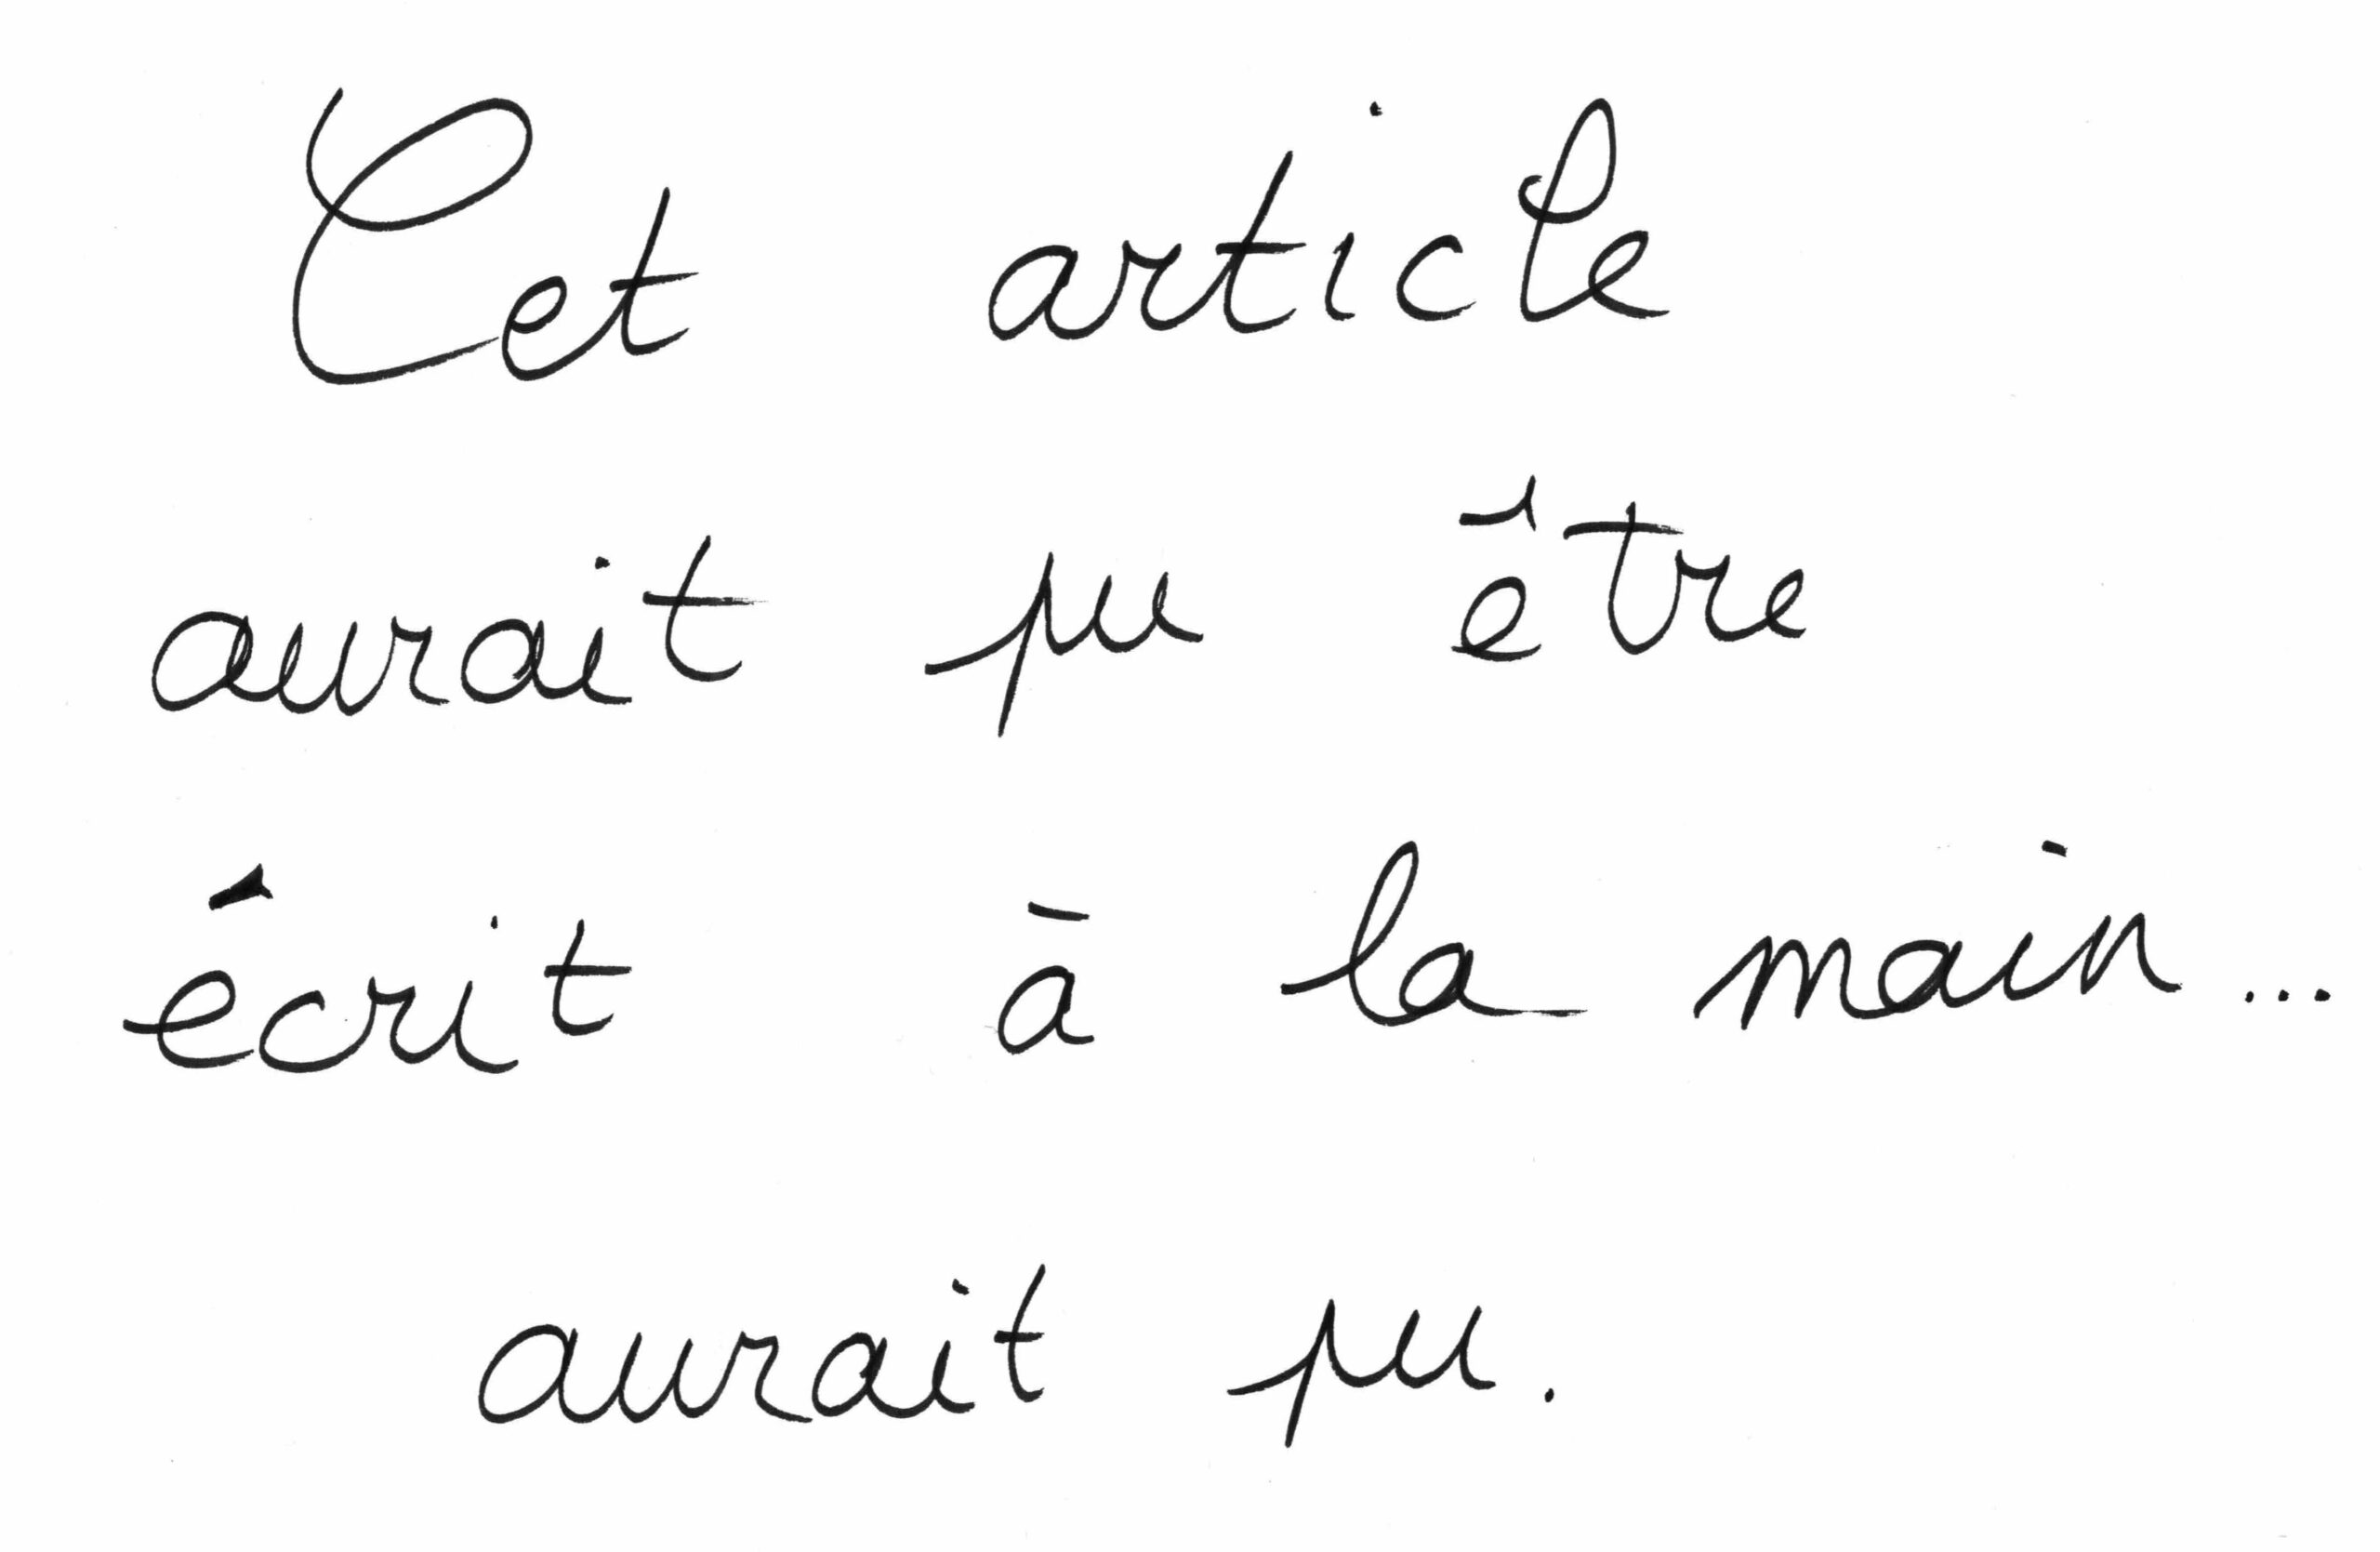 Cet article
aurait pu être
écrit à la main...
aurait pu.